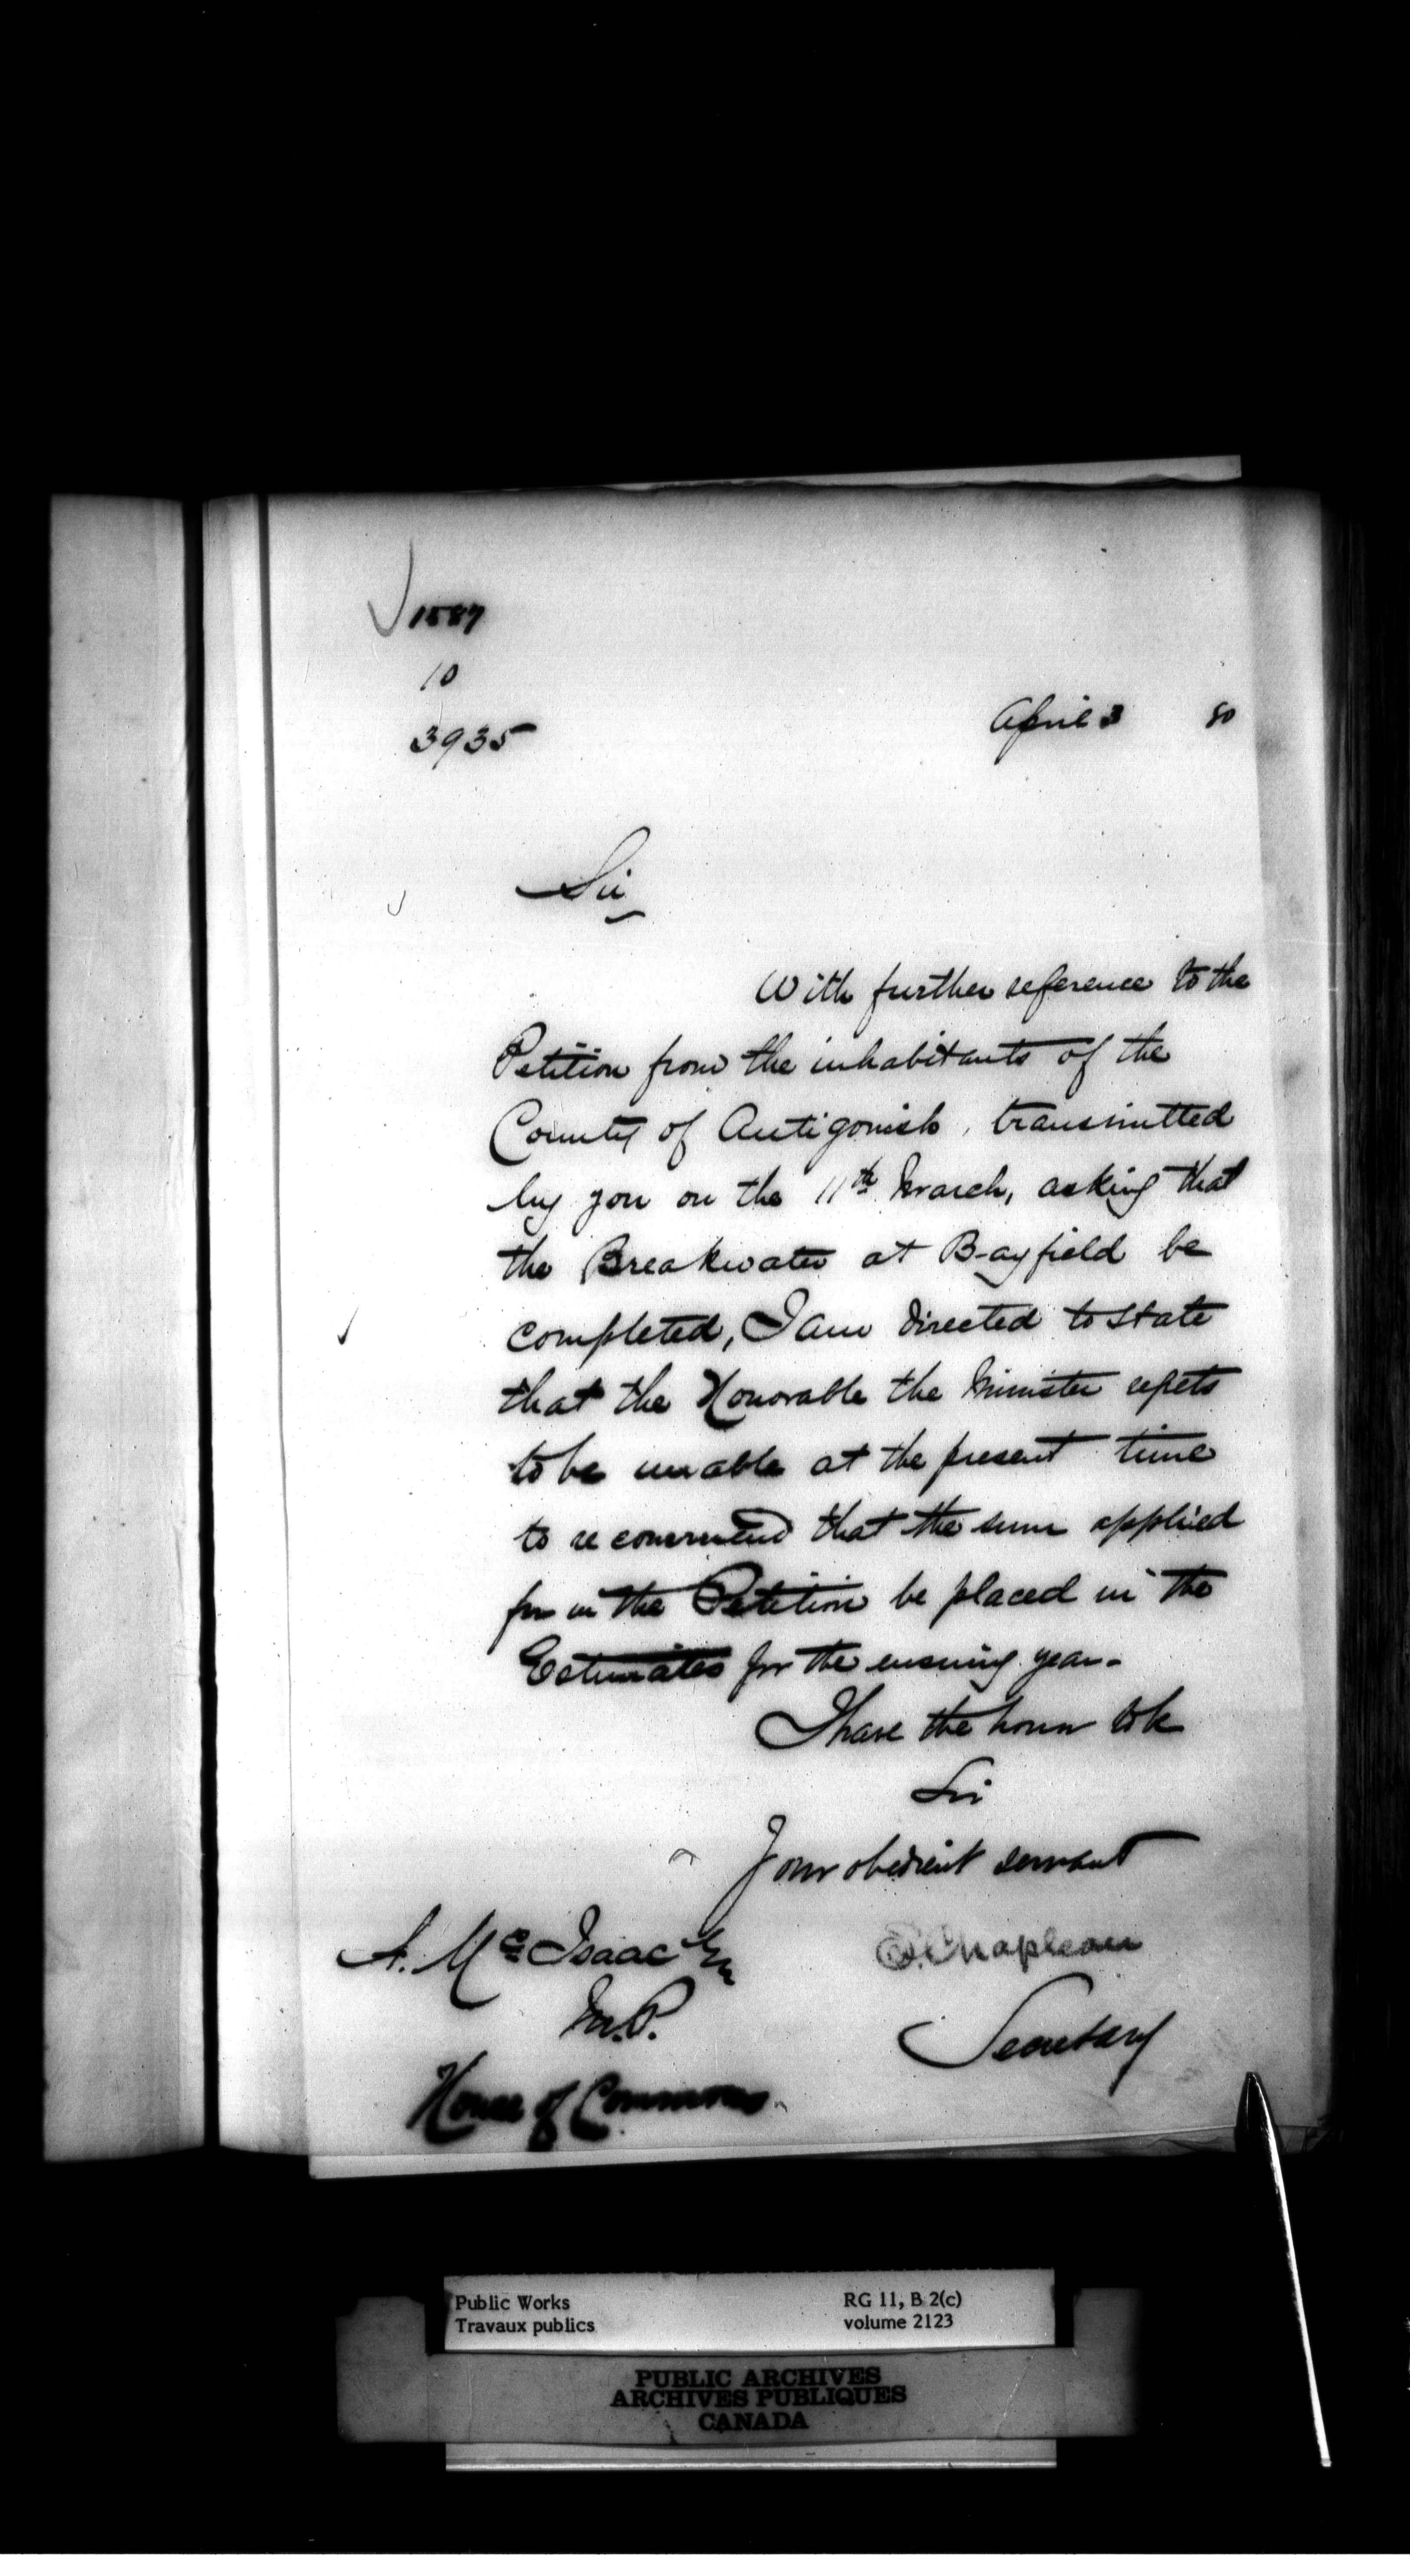 1587
10
3935
April 3 80
Sir
With further reference to the
Petition from the inhabitants of the
County of Antigonish, transmitted
by you on the 11th March, asking that
the Breakwater at Bayfield be
completed, I am directed to state
that the Honorable the Minister regrets
to be unable at the present time
to recommend that the sum applied
for in the Petition be placed in the
Estimates for the ensuing year.
I have the honor to be
Sir
Your obedient servant
A. Mc Isaac Esq
M.P.
House of Commons
Chapleau
Secretary
Public Works
Travaux publics
RG 11, B 2(c)
volume 2123
PUBLIC ARCHIVES
ARCHIVES PUBLIQUES
CANADA